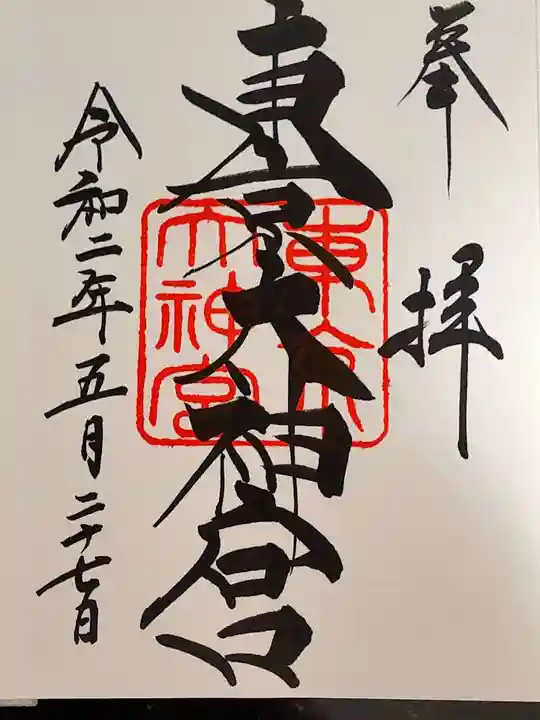 奉拝
東京大神宮
東京
大神宮
令和二年五月二十七日